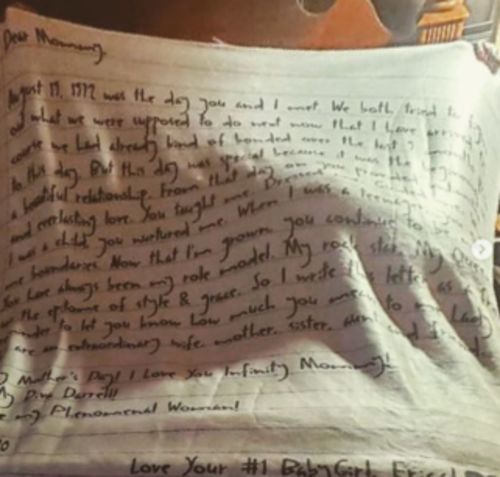 Dear Mommy,
August 19, 1972 was the day you and I met. We both tried to
out what we were supposed to do next now that I have arrived,
course we had already kind of bonded over the last 9 months
to this day. But this day was special because it was the
a beautiful relationship. From that day on you provided
and everlasting love. You taught me. Dressed
I was a child you nurtured me. When I was a teenager
me boundaries. Now that I'm grown, you continue to be
You have always been my role model. My rock star. My Queen
the epitome of style & grace. So I write this letter as a
to let you know how much you mean to me. Lady
are an extraordinary wife, mother, sister, aunt and friend
Mother's Day! I Love You Infinity Mommy!
My Diva Darrell!
my Phenomenal Woman!
Love Your #1 BabyGirl,